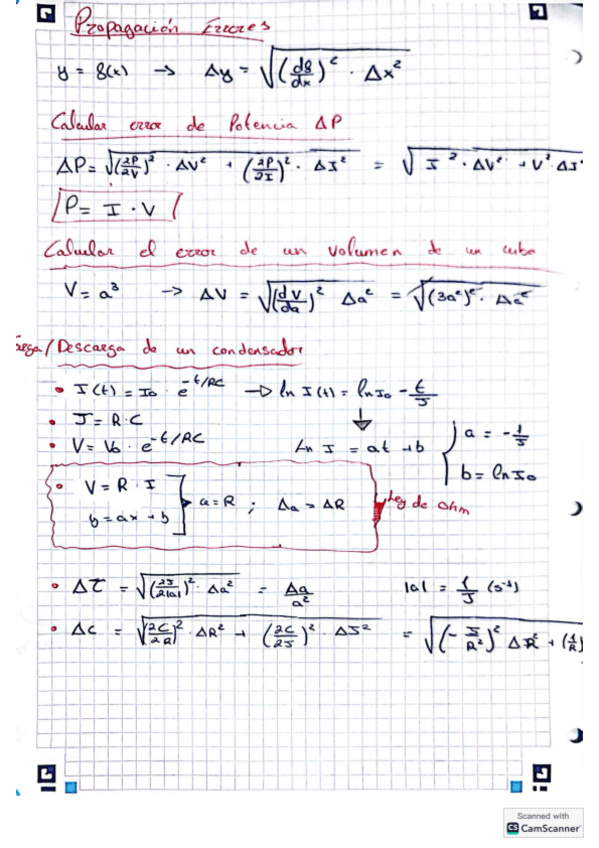 Propagación Errores
y = g(x) → Δy = √((dg/dx)² · Δx²)
Calcular error de Potencia ΔP
ΔP = √((∂P/∂V)² · ΔV² + (∂P/∂I)² · ΔI²) = √(I² · ΔV² + V² ΔI²
P = I · V
Calcular el error de un volumen de un cubo
V = a³ → ΔV = √((dV/da)² Δa²) = √((3a²)² · Δa²)
rga/Descarga de un condensador
• I(t) = I₀ · e^(-t/RC) → ln I(t) = ln I₀ - t/J
• J = R·C
• V = V₀ · e^(-t/RC) Ln I = at + b { a = -1/J
b = ln I₀
• V = R · I
y = ax + b ] a = R ; Δa = ΔR Ley de Ohm
• Δτ = √((∂J/∂|a|)² · Δa²) = Δa/a² |a| = 1/J (s⁻¹)
• ΔC = √((∂C/∂R)² · ΔR² + (∂C/∂J)² · ΔJ²) = √((-J/R²)² ΔR² + (1/R)
Scanned with
CS CamScanner